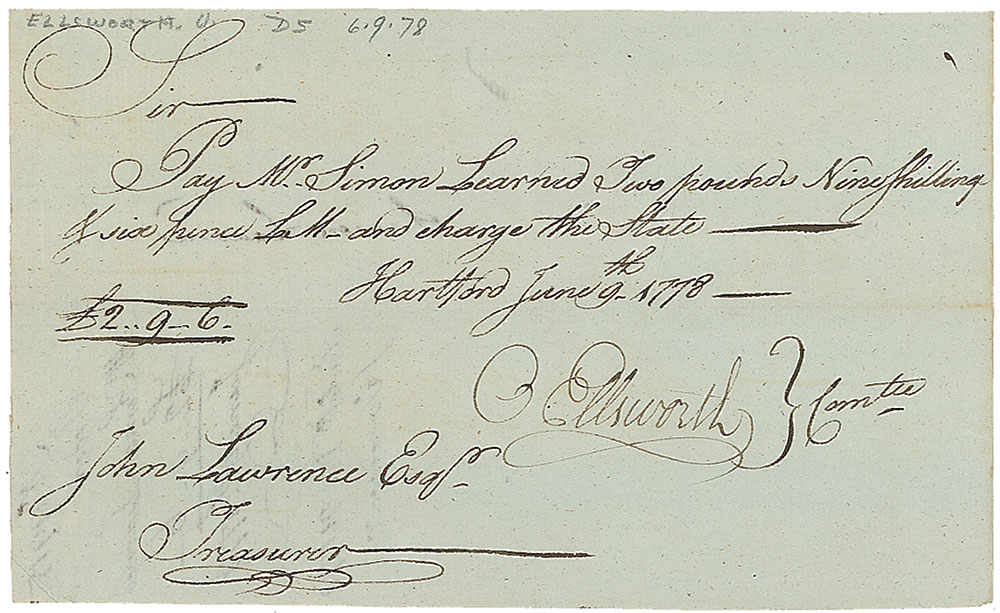 ELLSWORTH. O. DS 6.9.78
Sir
Pay Mr. Simon Learned Two pounds Nine Shilling
& six pence LM - and charge the State
Hartford June 9th 1778
£2..9-6-
O Ellsworth } Comtee
John Lawrence Esqr.
Treasurer